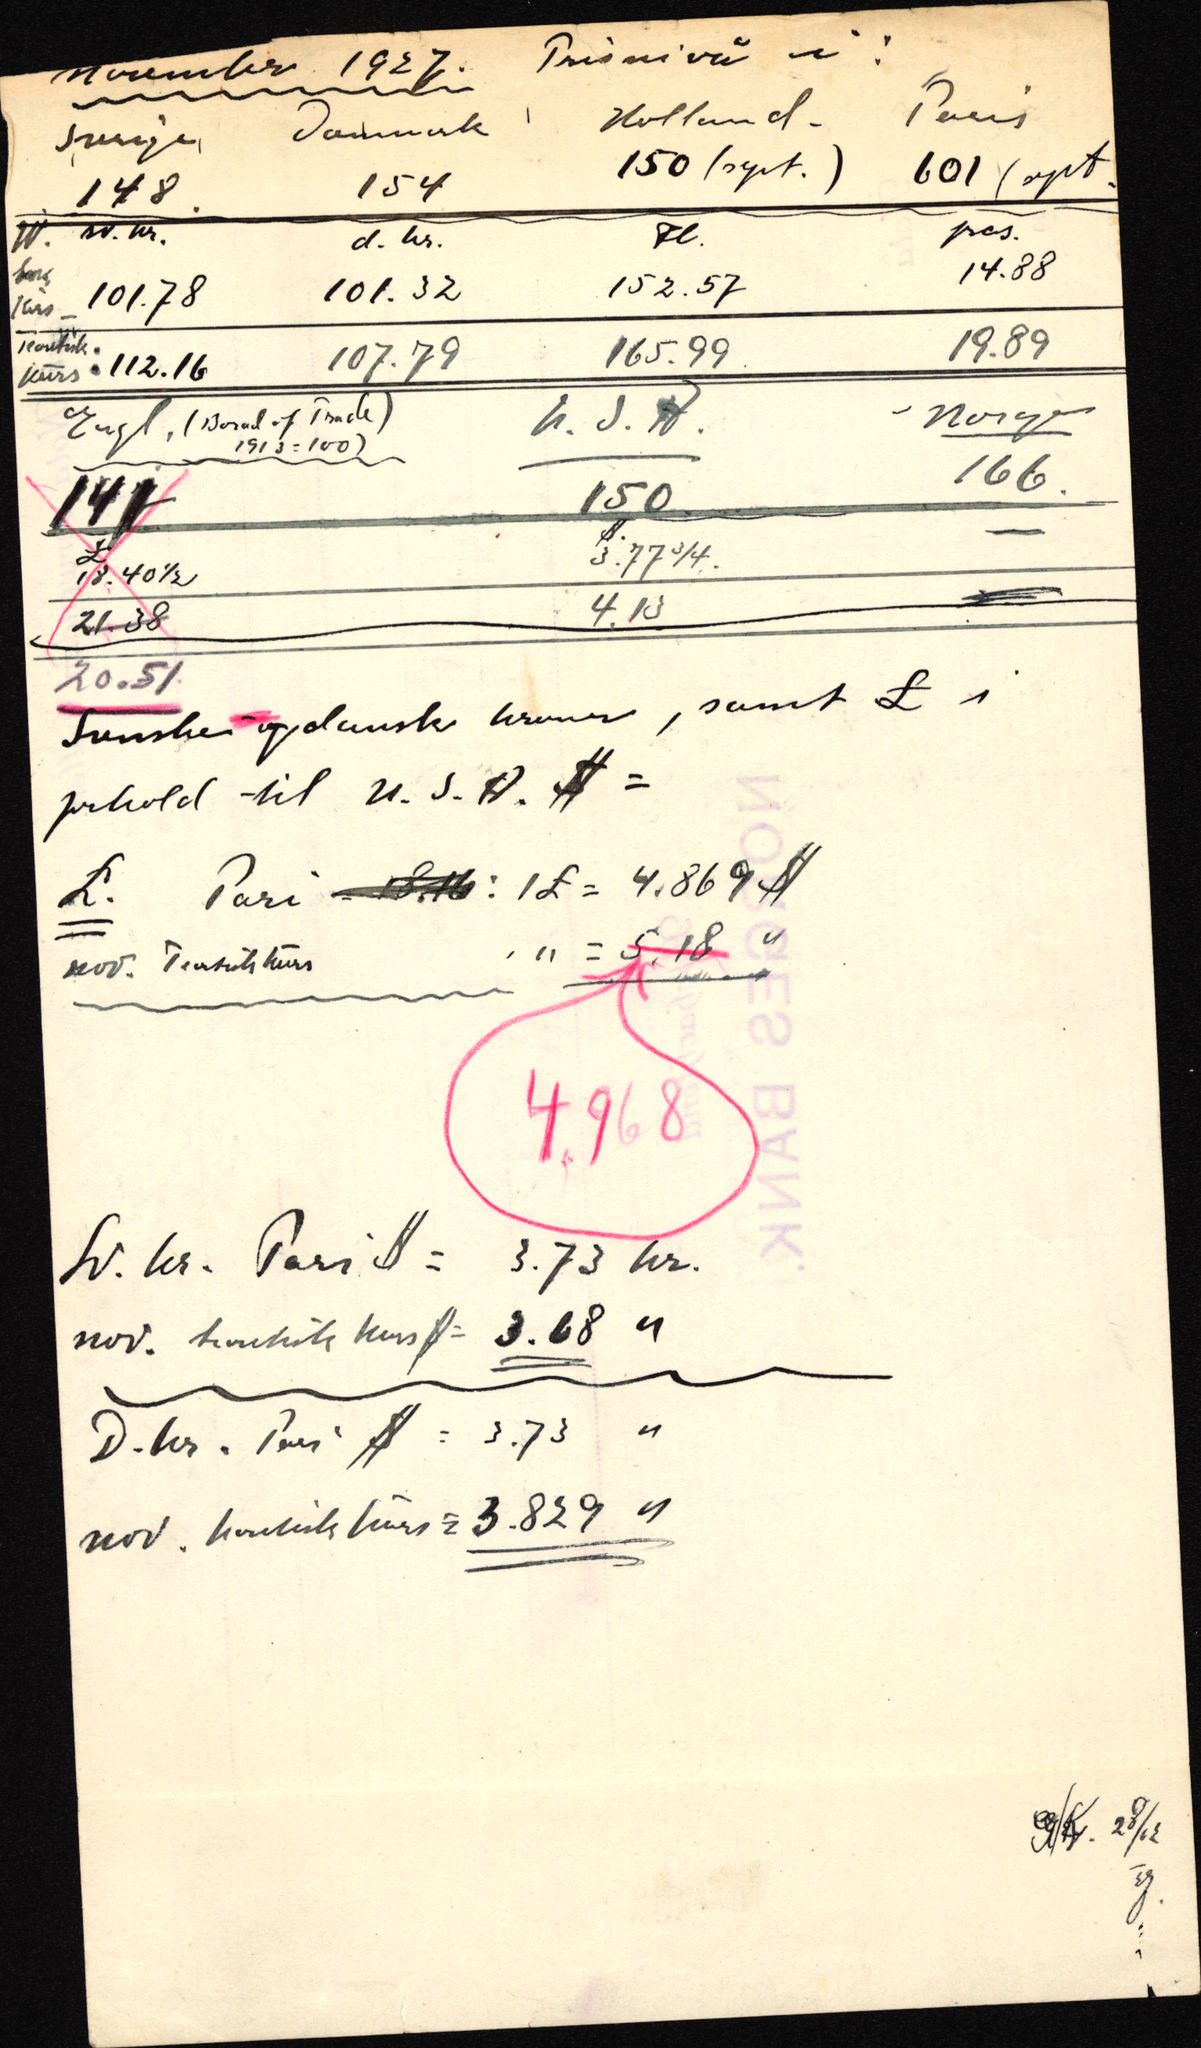 November 1927. Prisnivå i:
Sverige Danmark Holland Paris
148. 154 150 (sept.) 601 (sept.
sv. kr. d. kr. Fl. frcs.
kurs 101.78 101.32 152.57 14.88
Teoretisk kurs: 112.16 107.79 165.99 19.89
Engl. (Board of Trade) U.S.A. Norge
1913=100)
141 150 166.
£ $. —
18.40½ 3.77¾.
21.38 4.13
20.51
Svenske og danske kroner, samt £ i
forhold til U.S.A. $ =
£. Pari : 1£ = 4.869 $
nov. Teoretisk kurs " = 5.18 "
4.968
Sv. kr. Pari $ = 3.73 kr.
nov. teoretisk kurs $ = 3.68 "
D. kr. Pari $ = 3.73 "
nov. teoretisk kurs = 3.829 "
28/12
27.
NORGES BANK.